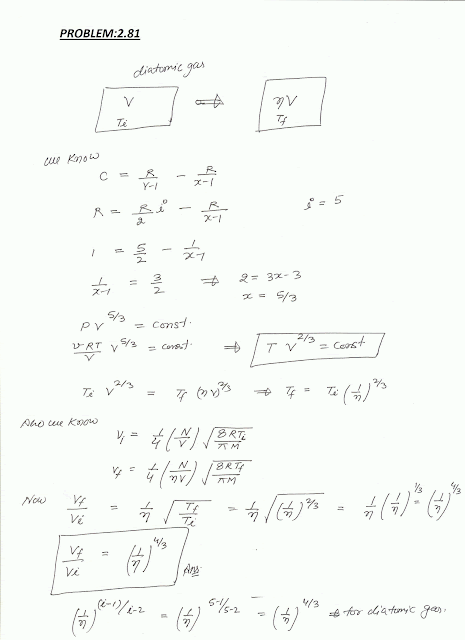 PROBLEM:2.81
diatomic gas
V ⇒ ηV
Ti Tf
we know
C = R/γ-1 - R/x-1
R = R/2 i - R/x-1 i = 5
1 = 5/2 - 1/x-1
1/x-1 = 3/2 ⇒ 2 = 3x-3
x = 5/3
PV^5/3 = const.
νRT/V V^5/3 = const. ⇒ T V^2/3 = const
Ti V^2/3 = Tf (ηV)^2/3 ⇒ Tf = Ti (1/η)^2/3
Also we know
νi = 1/4 (N/V) √8RTi/πM
νf = 1/4 (N/ηV) √8RTf/πM
Now νf/νi = 1/η √Tf/Ti = 1/η √(1/η)^2/3 = 1/η (1/η)^1/3 = (1/η)^4/3
νf/νi = (1/η)^4/3 Ans.
(1/η)^(i-1)/i-2 = (1/η)^5-1/5-2 = (1/η)^4/3 ⇒ for diatomic gas.